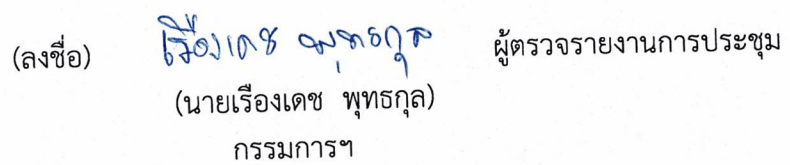 (ลงชื่อ) เรืองเดช พุทธกุล ผู้ตรวจรายงานการประชุม
(นายเรืองเดช พุทธกุล)
กรรมการฯ